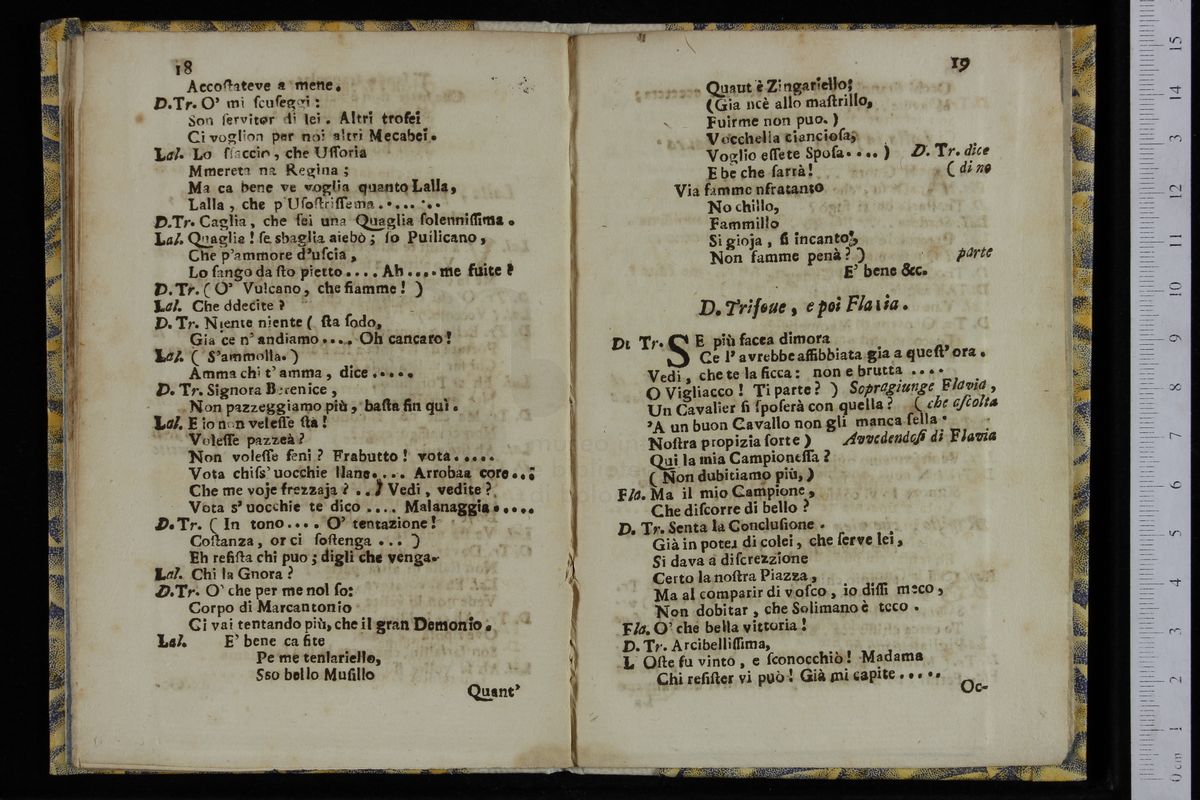 18
Accoſtateve a mene.
D.Tr. O' mi ſcuſeggi:
Son ſervitor di lei. Altri trofei
Ci voglion per noi altri Mecabei.
Lal. Lo ſſaccio, che Uſſoria
Mmereta na Regina;
Ma ca bene ve voglia quanto Lalla,
Lalla, che p'Uſoſtriſſema.......
D.Tr. Caglia, che ſei una Quaglia ſolenniſſima.
Lal. Quaglia! ſe sbaglia aiebò; ſo Puilicano,
Che p'ammore d'uſcia,
Lo ſango da ſto pietto.... Ah....me fuite?
D.Tr. (O' Vulcano, che fiamme!)
Lal. Che ddecite?
D.Tr. Niente niente (ſta ſodo,
Gia ce n'andiamo.... Oh cancaro!
Lal. (S'ammolla.)
Amma chi t'amma, dice.....
D.Tr. Signora Berenice,
Non pazzeggiamo più, baſta fin quì.
Lal. E io non veleſſe ſta!
Voleſſe pazzeà?
Non voleſſe feni? Frabutto! vota.....
Vota chiſs'uocchie llane.... Arrobaa core..;
Che me voje frezzaja?..) Vedi, vedite?
Vota s'uocchie te dico.... Malanaggia.....
D.Tr. (In tono.... O' tentazione!
Coſtanza, or ci ſoſtenga...)
Eh reſiſta chi puo; digli che venga.
Lal. Chi la Gnora?
D.Tr. O' che per me nol ſo:
Corpo di Marcantonio
Ci vai tentando più, che il gran Demonio.
Lal. E' bene ca ſite
Pe me tenlariello,
Sso bello Muſillo
Quant'
19
Quaut è Zingariello;
(Gia ncè allo maſtrillo,
Fuirme non puo.)
Vocchella ciancioſa,
Voglio eſſete Spoſa....) D. Tr. dice
E be che ſarrà! (di no
Via famme nfratanto
No chillo,
Fammillo
Si gioja, ſi incanto,
Non famme penà?) parte
E' bene &c.
D. Triſoue, e poi Flavia.
Di Tr. SE più facea dimora
Ce l'avrebbe affibbiata gia a queſt'ora.
Vedi, che te la ficca: non e brutta....
O Vigliacco! Ti parte?) Sopragiunge Flavia,
Un Cavalier ſi ſpoſerà con quella? (che aſcolta
'A un buon Cavallo non gli manca ſella.
Noſtra propizia ſorte) Avvedendoſi di Flavia
Qui la mia Campioneſſa?
(Non dubitiamo più,)
Fla. Ma il mio Campione,
Che diſcorre di bello?
D. Tr. Senta la Concluſione.
Già in poter di colei, che ſerve lei,
Si dava a diſcrezzione
Certo la noſtra Piazza,
Ma al comparir di voſco, io diſſi meco,
Non dobitar, che Solimano è teco.
Fla. O' che bella vittoria!
D. Tr. Arcibelliſſima,
L Oſte fu vinto, e ſconocchiò! Madama
Chi reſiſter vi può! Già mi capite.....
Oc-